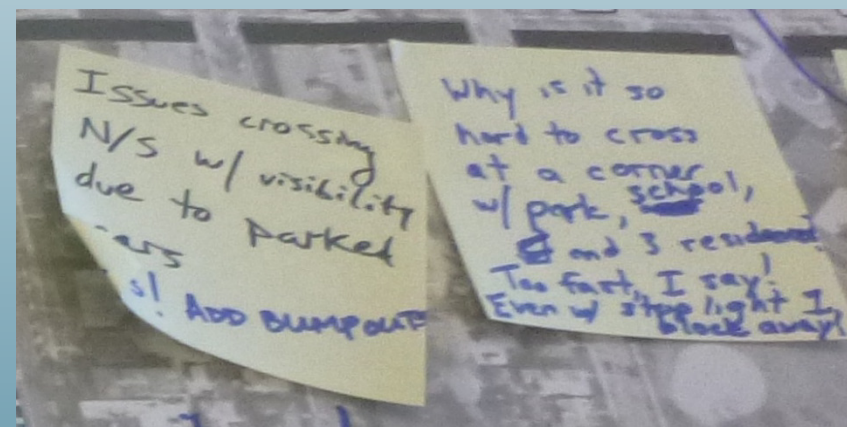 Issues crossing
N/S w/ visibility
due to parked
s! ADD BUMPOUTS
Why is it so
hard to cross
at a corner
w/ park, school,
and 3 residence
Too fast, I say!
Even w/ stop light 1
block away!